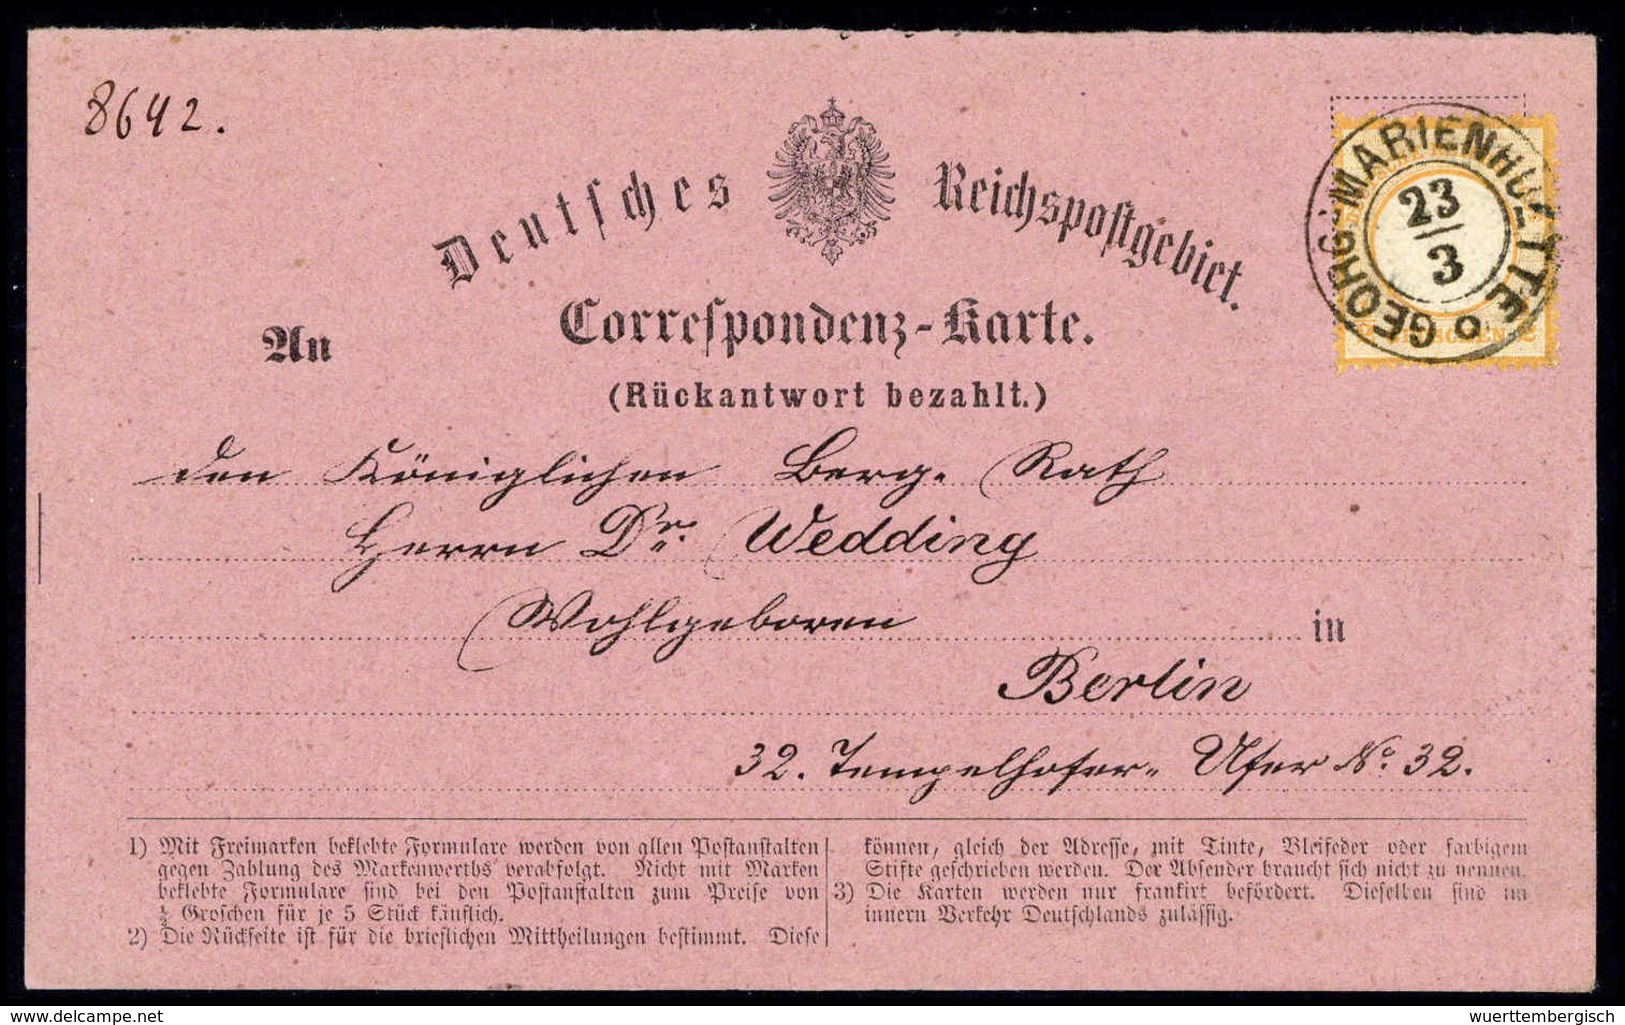 8642.
Deutsches Reichspostgebiet.
GEORGS-MARIENHÜTTE
23/3
An
Correspondenz-Karte.
(Rückantwort bezahlt.)
den Königlichen Berg-Rath
Herrn Dr. Wedding
Wohlgeboren
in
Berlin
32. Tempelhofer-Ufer No. 32.
1) Mit Freimarken beklebte Formulare werden von allen Postanstalten
gegen Zahlung des Markenwerths verabfolgt. Nicht mit Marken
beklebte Formulare sind bei den Postanstalten zum Preise von
½ Groschen für je 5 Stück käuflich.
2) Die Rückseite ist für die brieflichen Mittheilungen bestimmt. Diese
können, gleich der Adresse, mit Tinte, Bleifeder oder farbigem
Stifte geschrieben werden. Der Absender braucht sich nicht zu nennen.
3) Die Karten werden nur frankirt befördert. Dieselben sind im
innern Verkehr Deutschlands zulässig.
delcampe.net
wuerttembergisch